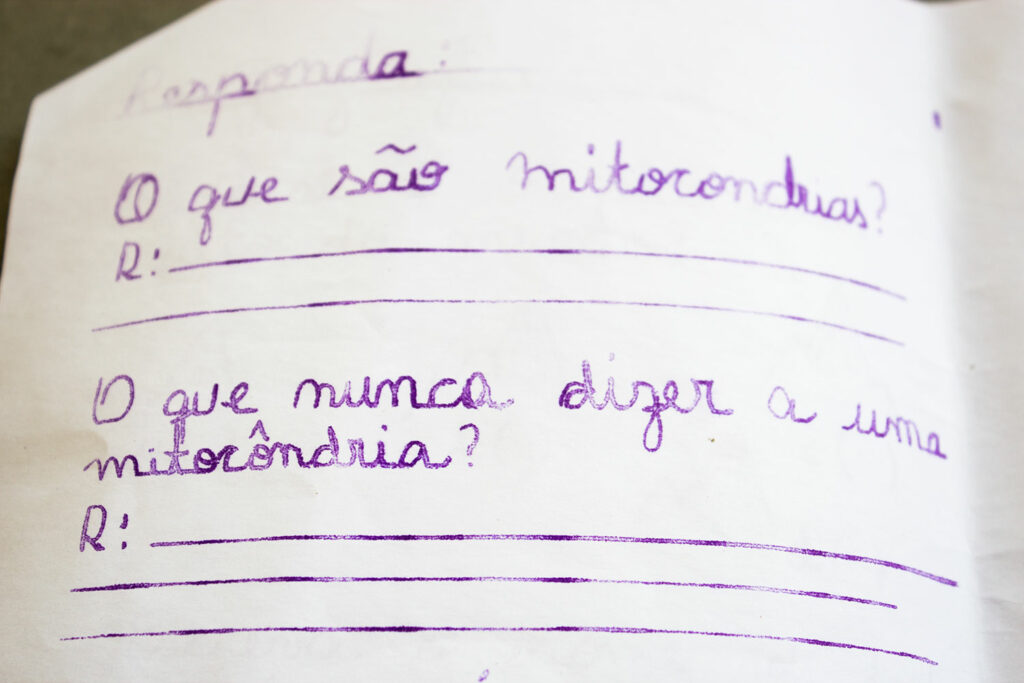 Responda:
O que são mitocondrias?
R:
O que nunca dizer a uma
mitocôndria?
R: